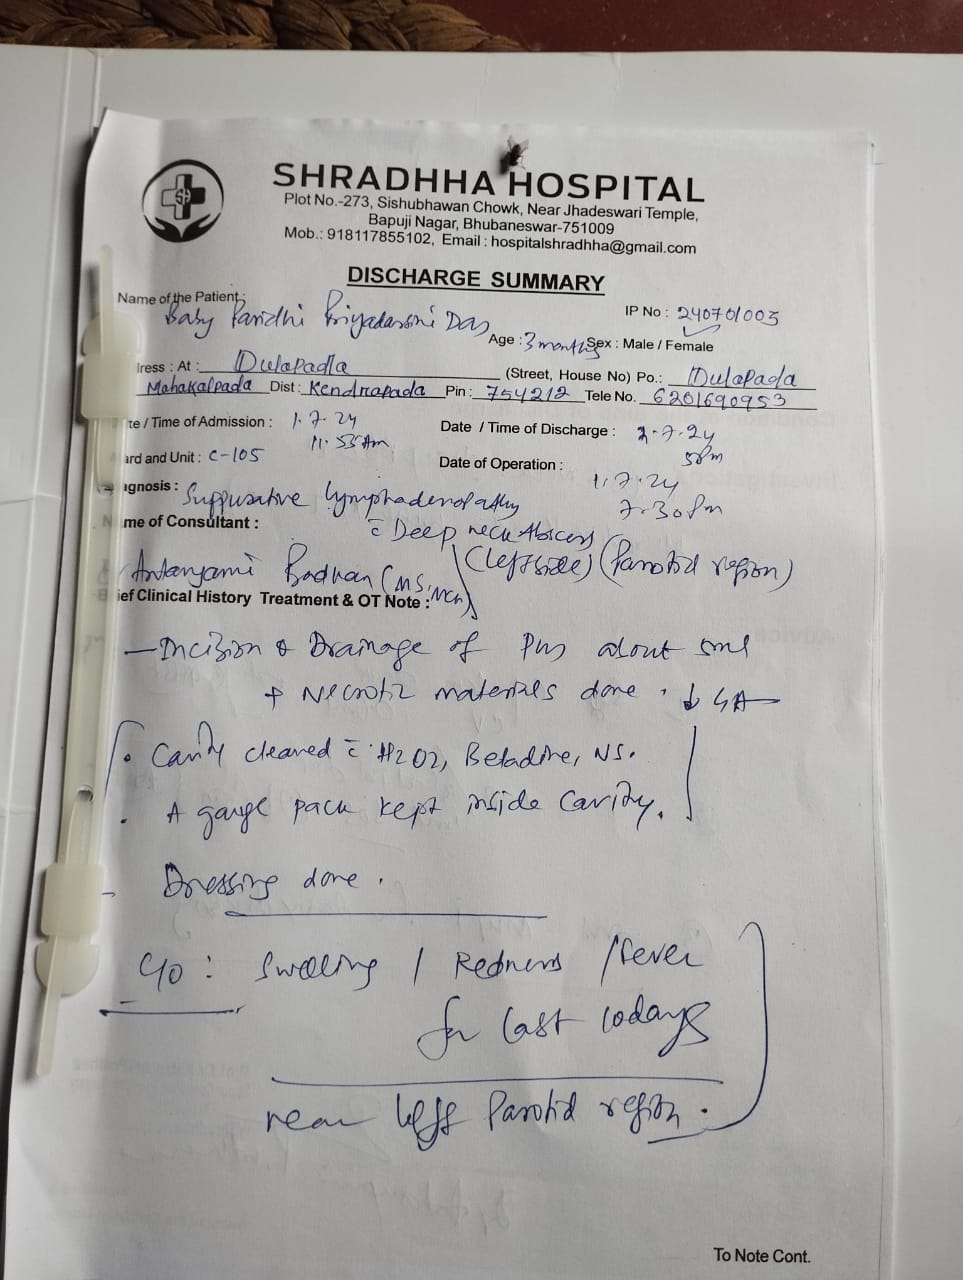 SHRADHHA HOSPITAL
Plot No.-273, Sishubhawan Chowk, Near Jhadeswari Temple,
Bapuji Nagar, Bhubaneswar-751009
Mob.: 918117855102, Email : hospitalshradhha@gmail.com
DISCHARGE SUMMARY
Name of the Patient: Baby Paridhi Priyadarsni Das IP No : 240701003
Age : 3 months Sex : Male / Female
dress : At : Dulapadla (Street, House No) Po.: Dulapada
Mahakalpada Dist : Kendrapada Pin : 754212 Tele No. 6201690953
te / Time of Admission : 1.7.24 11.55 Am Date / Time of Discharge : 2.7.24 5Pm
ard and Unit : C-105 Date of Operation : 1.7.24 7.30Pm
agnosis : Suppurative lymphadenopathy
c̄ Deep neck Abscess
me of Consultant :
(Left side) (Parotid region)
Antaryami Pradhan (MS, MCh)
ief Clinical History Treatment & OT Note :
— Incision & Drainage of Pus about 5ml
+ Necrotic materials done . ↓ GA
• Cavity cleaned c̄ H2O2, Betadine, NS.
• A gauge pack kept inside Cavity.
- Dressing done .
C/O : Swelling / Redness / Fever
for last 10days
near left Parotid region .
To Note Cont.